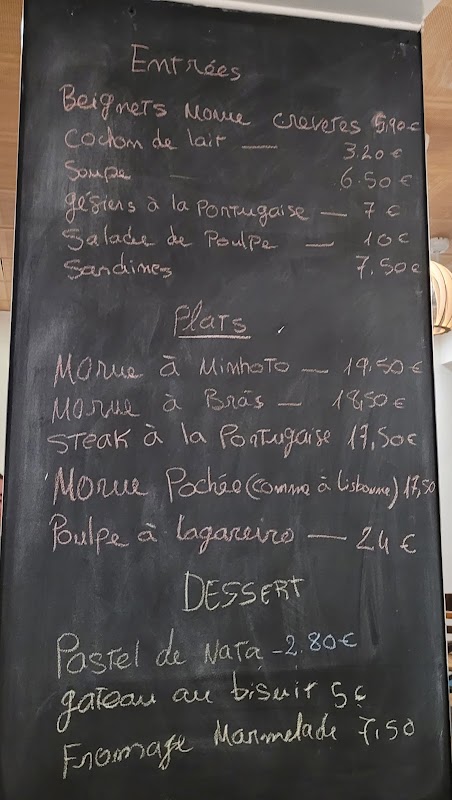 Entrées
Beignets Morue crevetes 5,90€
Cochon de lait — 3.20€
Soupe — 6.50€
géziers à la Portugaise — 7€
Salade de Poulpe — 10€
Sardines 7.50€
Plats
Morue à Minhoto — 19,50€
Morue à Brás — 18,50€
Steak à la Portugaise 17,50€
Morue Pochée (comme à Lisbonne) 17,50
Poulpe à Lagareiro — 24€
DESSERT
Pastel de Nata - 2.80€
gateau au biscuit 5€
Fromage Marmelade 7,50